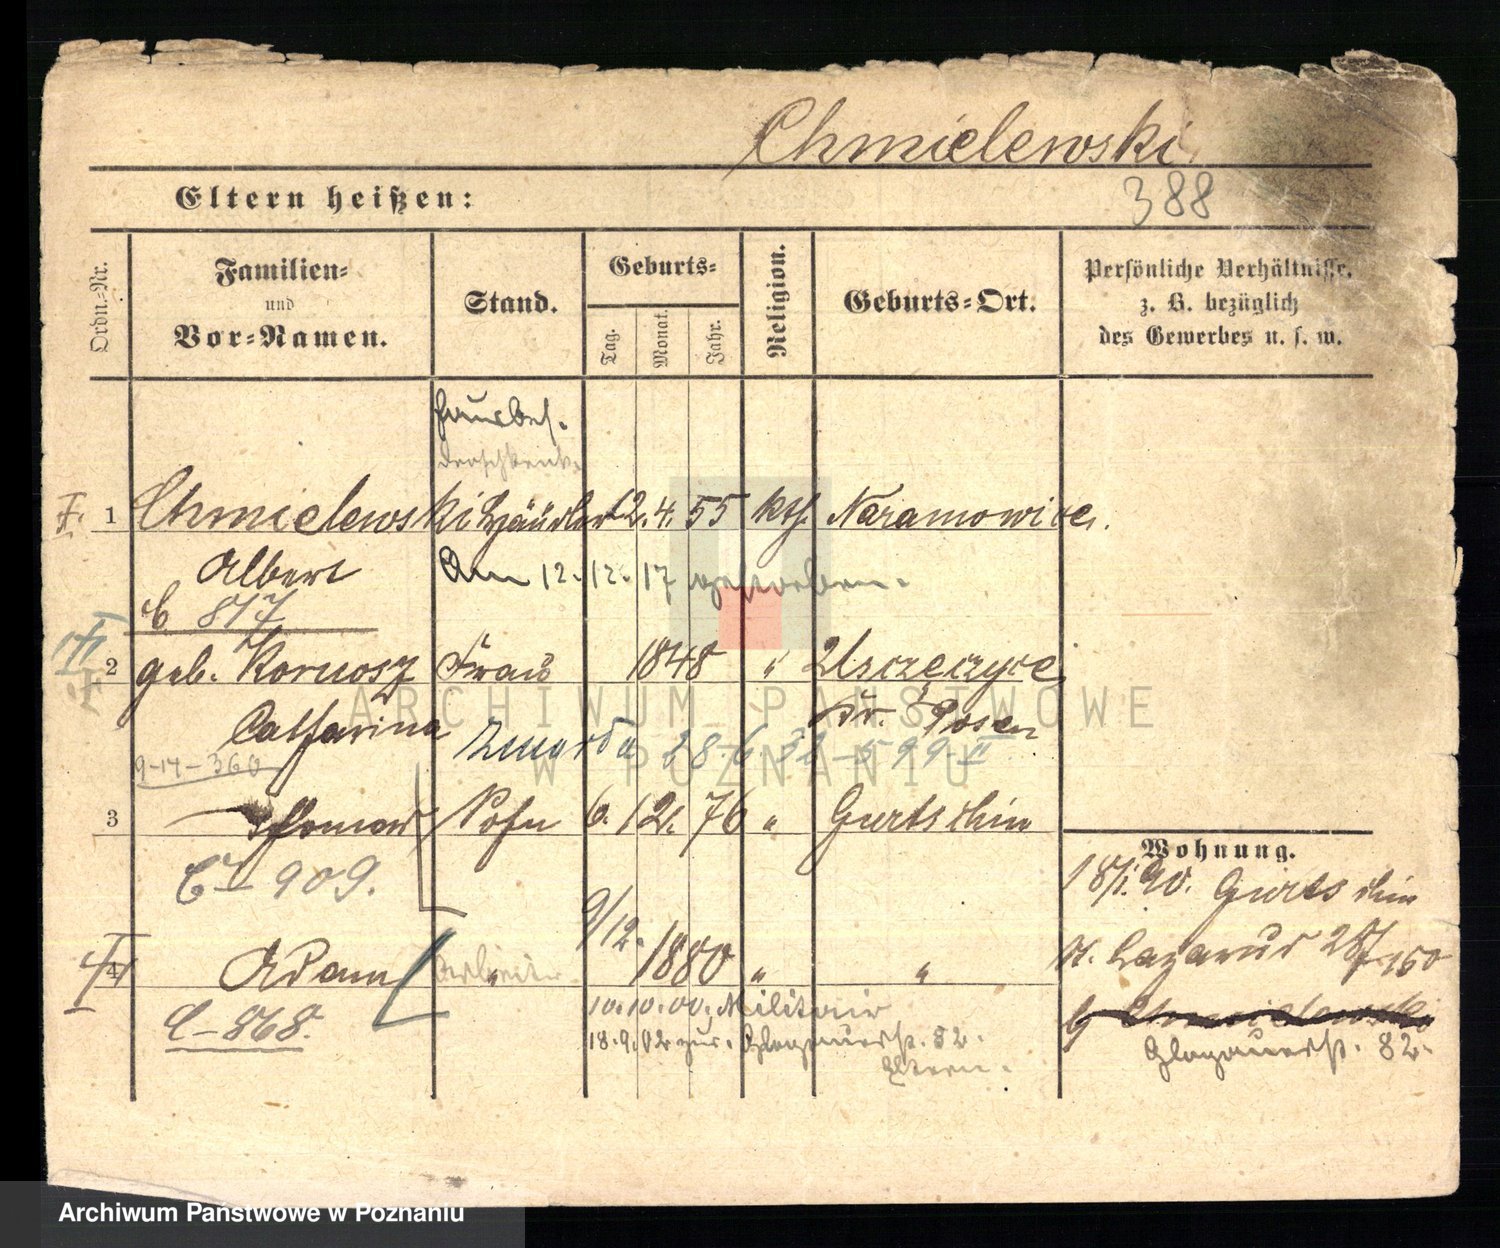 Chmielewski
Eltern heißen:
388
Ordn.-Nr.
Familien-
und
Vor-Namen.
Stand.
Geburts-
Tag.
Monat.
Jahr.
Religion.
Geburts-Ort.
Persönliche Verhältnisse.
z. B. bezüglich
des Gewerbes u. s. w.
Hausbes.
1 Chmielewski Händler 12. 4. 55 kth. Naramowice.
Albert
Am 12.12.17 gestorben.
C 817
2 geb. Kornosz Frau 1848 "
Catharina
Kr. Posen
Zmarła 28.6.32 - 599-II
9-14-360
3 Thomas Sohn 6. 12. 76 " Gurtschin
C I - 909.
Wohnung.
18/1.90. Gurtschin
9/12.
4 Adam Arbeiter " 1880 " "
St. Lazarus
C - 868.
10.10.00. Militair
18.9.02 zur. Glogauerstr. 82.
Eltern.
b Chmielewski
Glogauerstr. 82.
ARCHIWUM PAŃSTWOWE
W POZNANIU
Archiwum Państwowe w Poznaniu